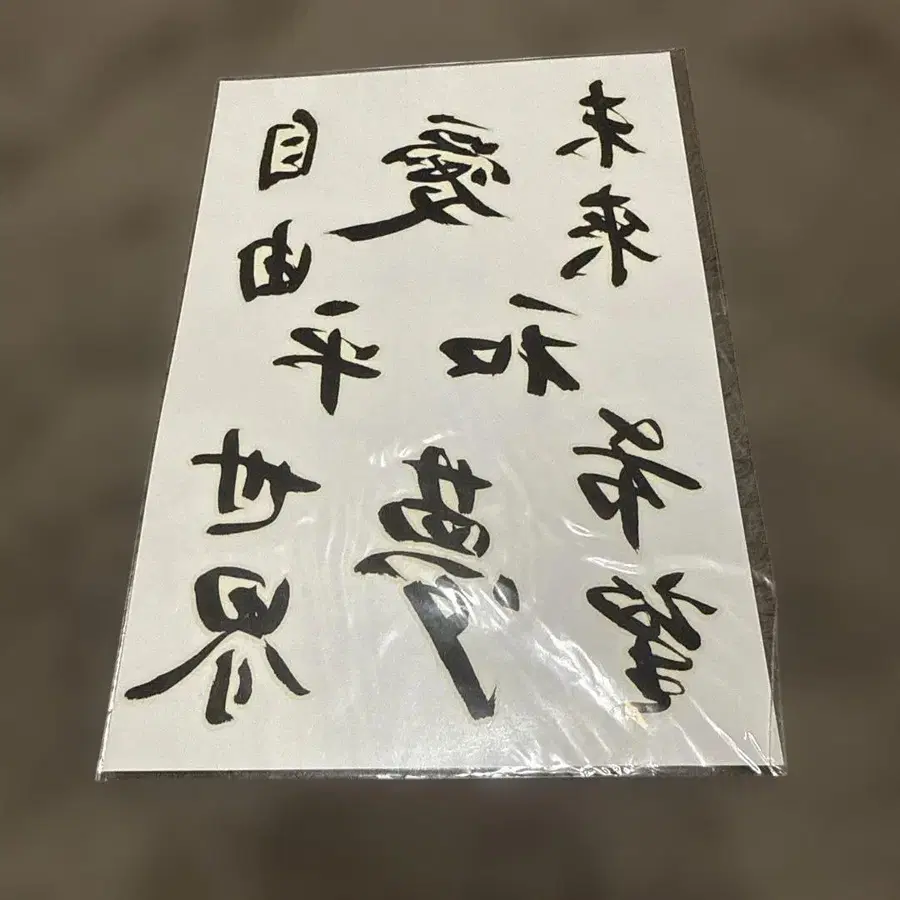 未来
愛
自由
平和
希望
夢
世界